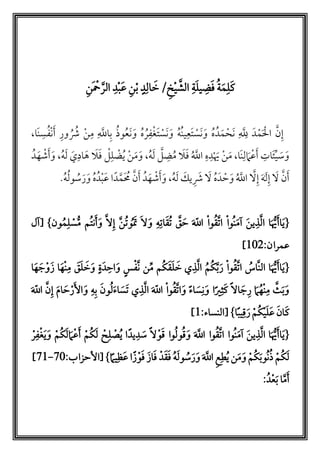 كَلِمَةُ فَضِيلَةِ الشَّيْخِ/ خَالِدِ بْنِ عَبْدِ الرَّحْمَنِ
إِنَّ الْحَمْدَ لِلَّهِ نَحْمَدُهُ وَنَسْتَعِينُهُ وَنَسْتَغْفِرُهُ وَنَعُوذُ بِاللَّهِ مِنْ شُرُورِ أَنْفُسِنَا،
وَسَيِّئَاتِ أَعْمَالِنَا، مَنْ يَهْدِهِ اللَّهُ فَلَا مُضِلَّ لَهُ، وَمَنْ يُضْلِلْ فَلَا هَادِيَ لَهُ، وَأَشْهَدُ
أَنَّ لَا إِلَهَ إِلَّا اللَّهُ وَحْدَهُ لَا شَرِيكَ لَهُ، وَأَشْهَدُ أَنَّ مُحَمَّدًا عَبْدُهُ وَرَسُولُهُ.
{يَاأَيُّهَا الَّذِينَ آمَنُواْ اتَّقُواْ اللّهَ حَقَّ تُقَاتِهِ وَلاَ تَمُوتُنَّ إِلاَّ وَأَنتُم مُّسْلِمُونَ} [آل
عمران:102]
{يَاأَيُّهَا النَّاسُ اتَّقُواْ رَبَّكُمُ الَّذِي خَلَقَكُم مِّن نَّفْسٍ وَاحِدَةٍ وَخَلَقَ مِنْهَا زَوْجَهَا
وَبَثَّ مِنْهُمَا رِجَالاً كَثِيرًا وَنِسَاء وَاتَّقُواْ اللّهَ الَّذِي تَسَاءلُونَ بِهِ وَالأَرْحَامَ إِنَّ اللّهَ
كَانَ عَلَيْكُمْ رَقِيبًا} [النساء:1]
{يَاأَيُّهَا الَّذِينَ آمَنُوا اتَّقُوا اللَّهَ وَقُولُوا قَوْلاً سَدِيدًا يُصْلِحْ لَكُمْ أَعْمَالَكُمْ وَيَغْفِرْ
لَكُمْ ذُنُوبَكُمْ وَمَن يُطِعْ اللَّهَ وَرَسُولَهُ فَقَدْ فَازَ فَوْزًا عَظِيمًا} [الأحزاب:70-71]
أَمَّا بَعْدُ: